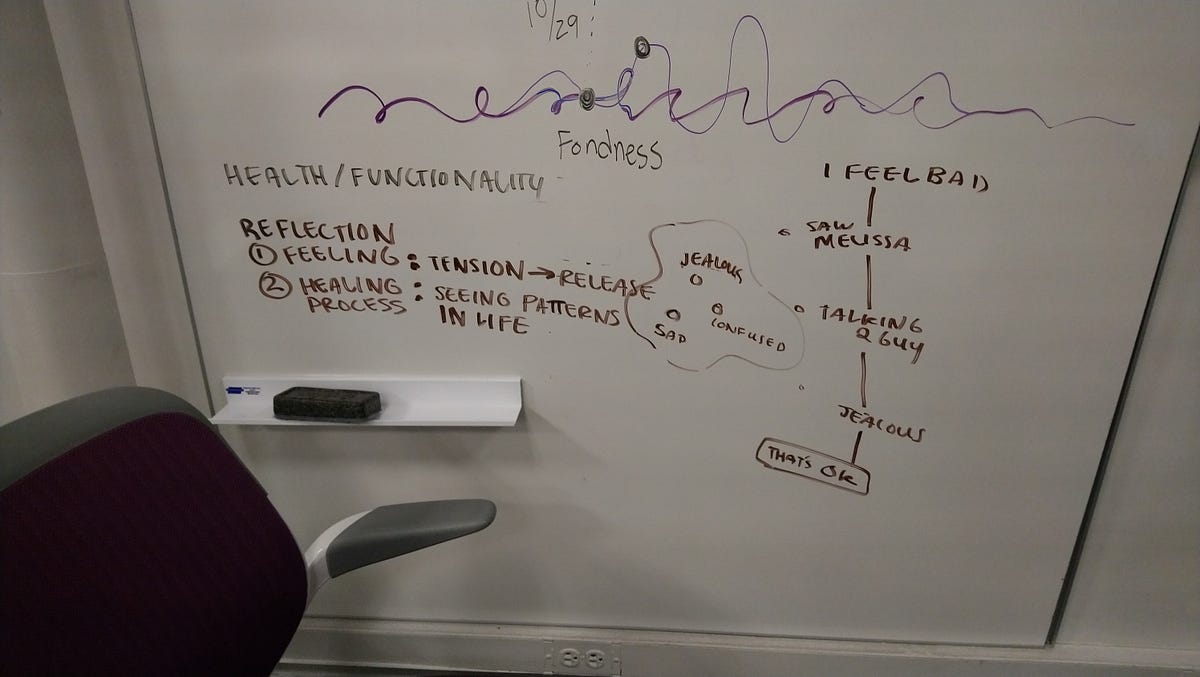 10/29
Fondness
HEALTH/FUNCTIONALITY
REFLECTION
① FEELING : TENSION → RELEASE
② HEALING : SEEING PATTERNS
PROCESS IN LIFE
JEALOUS
SAD
CONFUSED
I FEEL BAD
SAW
MELISSA
TALKING
2 GUY
JEALOUS
THAT'S OK